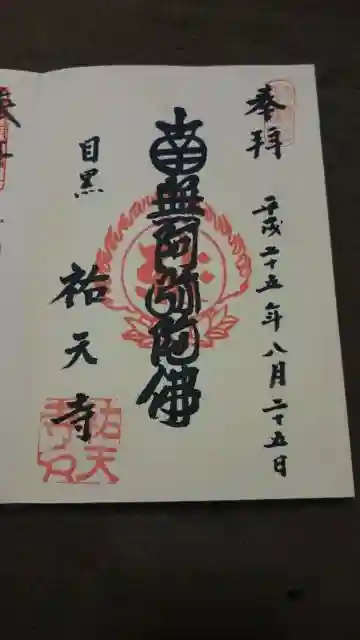 奉拝
平成二十五年八月二十五日
南無阿弥陀佛
目黒
祐天寺
祐天
寺印